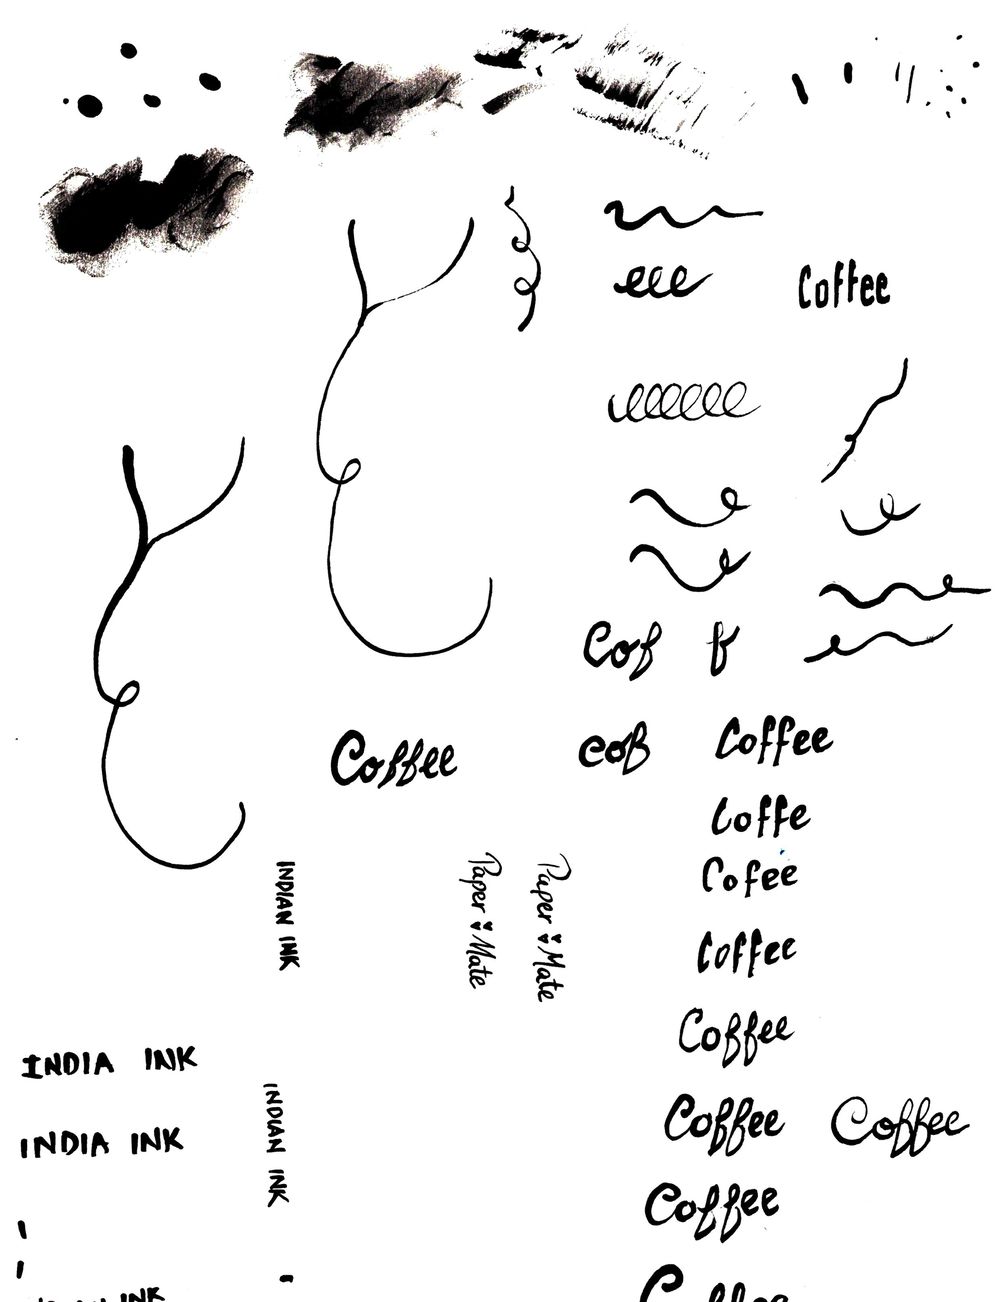 Coffee
Cof f
Coffee
cof
Coffee
Coffe
Cofee
Coffee
Coffee
Coffee
Coffee
Coffee
Coffee
INDIAN INK
Paper Mate
Paper Mate
INDIA INK
INDIA INK
INDIAN INK
INK